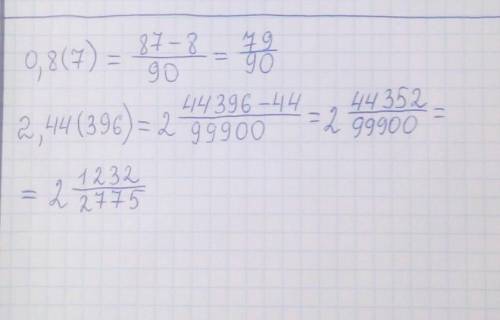 0,8(7) = (87-8)/90 = 79/90
2,44(396) = 2 (44396-44)/99900 = 2 44352/99900 =
= 2 1232/2775